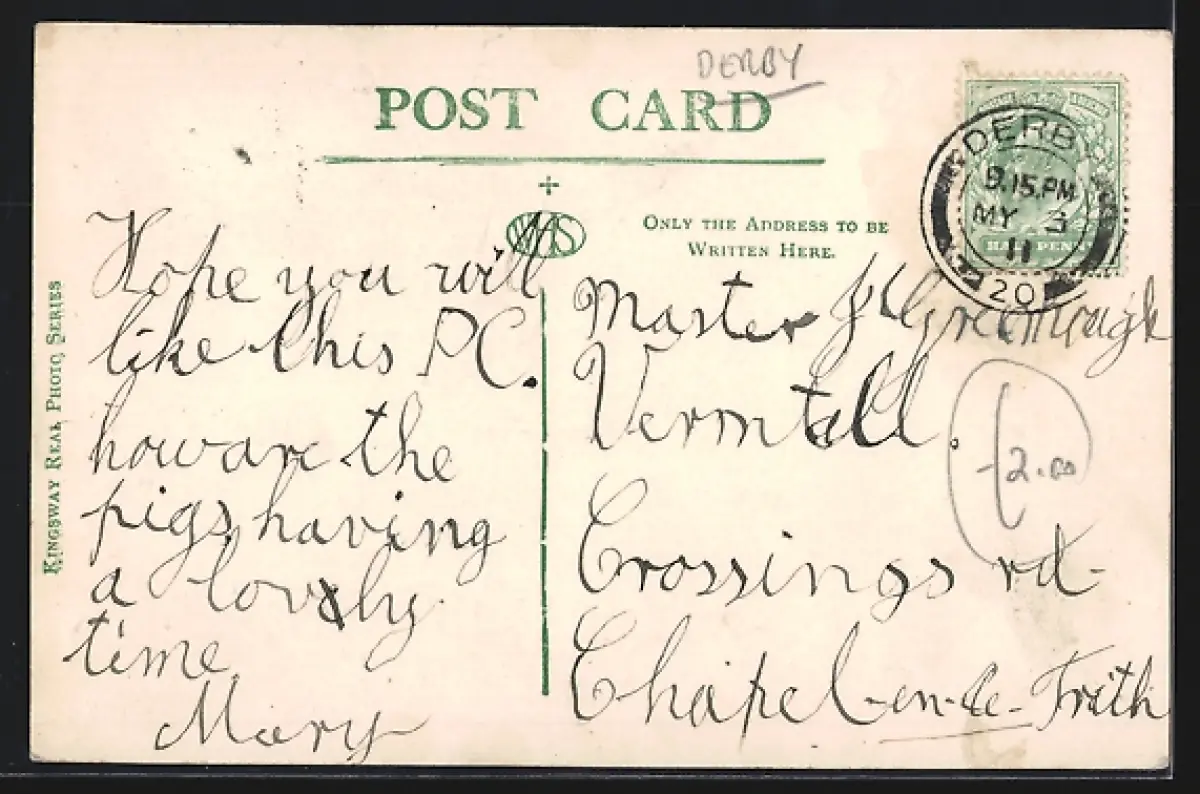 DERBY
POST CARD
ONLY THE ADDRESS TO BE
WRITTEN HERE.
KINGSWAY REAL PHOTO SERIES
DERBY
9.15.PM
MY 3
11
20
HALF PENNY
Hope you will
like this PC.
how are the
pigs, having
a lovely
time
Mary
Master
Crossings rd-
Chapel-en-le-Frith
-/2.00